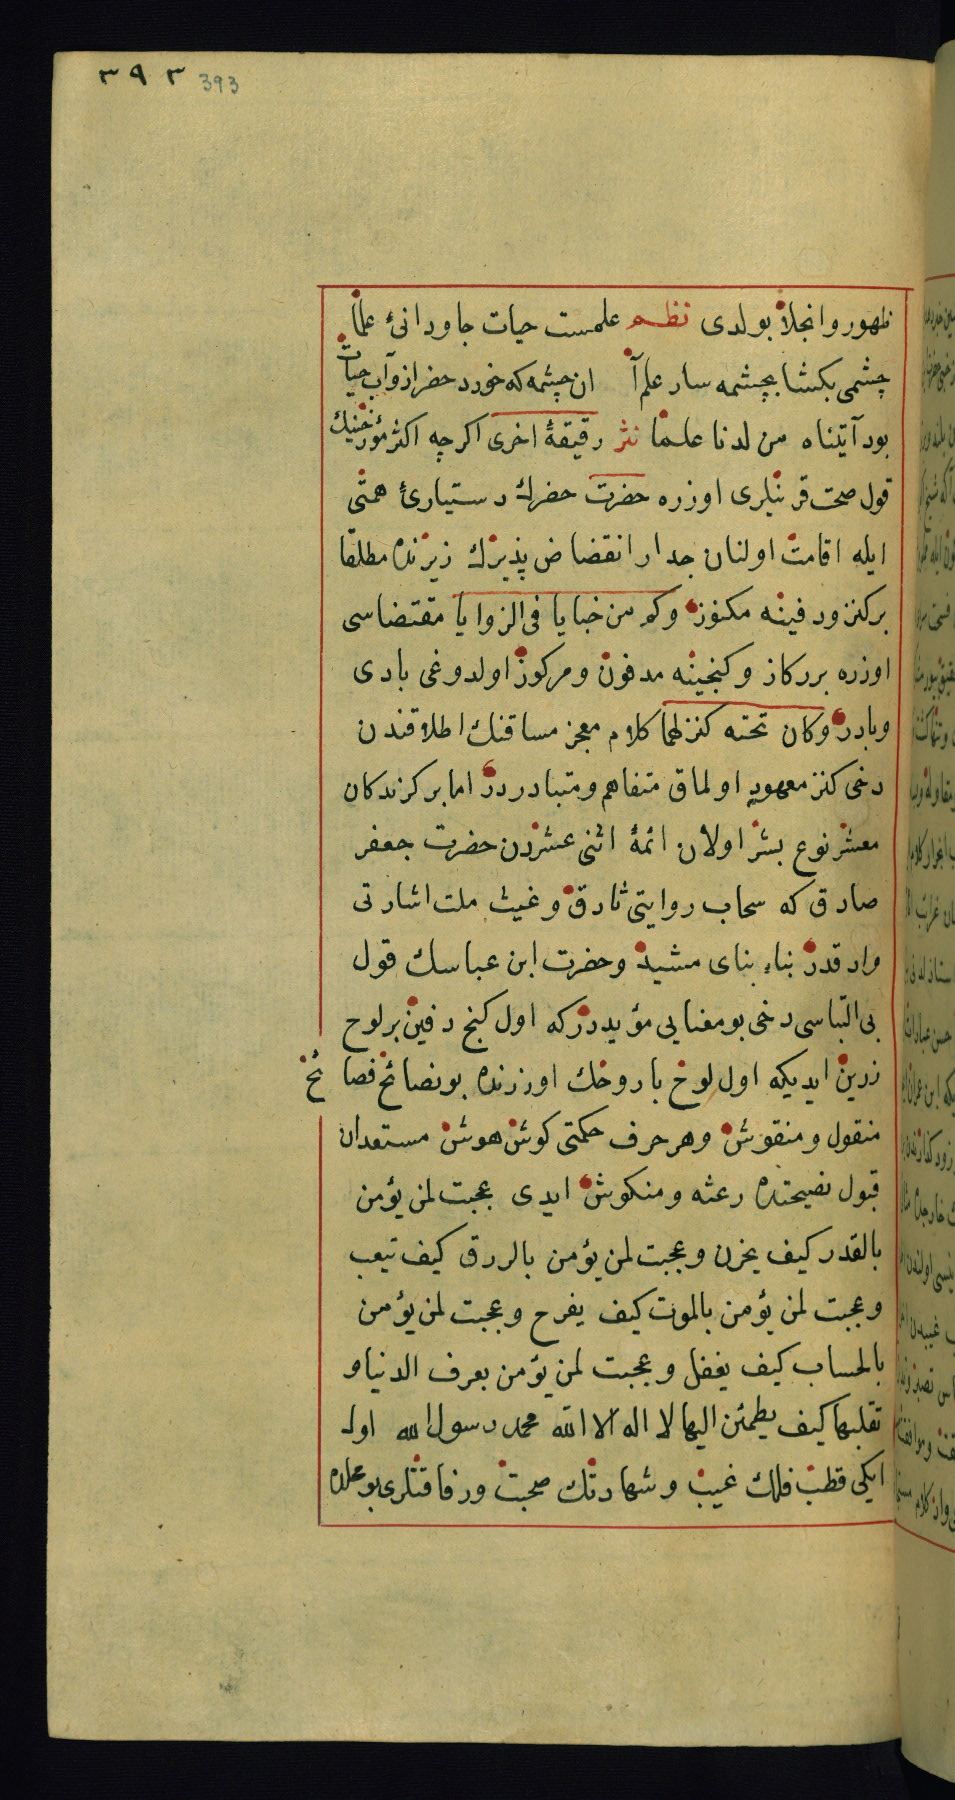 ٣٩٣ 393
ظهور وانجلا بولدى نظم علمست حيات جاودانئ علما
چشمى بكشا بچشمه سار علم آ ان چشمه كه خورد حضر ازو آب حيات
بود آتيناه من لدنا علما نثر رقيقهٔ اخرى اكرچه اكثر مؤرخينك
قول صحت قرينلرى اوزره حضرت حضرك دستيارئ همتى
ايله اقامت اولنان جدار انقضاض پذيرك زيرنده مطلقا
بر كنز ودفينه مكنوز وكم من خبايا فى الزوايا مقتضاسى
اوزره بر ركاز وكنجينه مدفون ومركوز اولدوغى بادى
وبادر وكان تحته كنز لهما كلام معجز مساقنك اطلاقندن
دخى كنز معهود اولماق متفاهم ومتبادردر اما بركزندكان
معشر نوع بشر اولان ائمهٔ اثنى عشردن حضرت جعفر
صادق كه سحاب روايتى ثادق وغيث ملت اشارتى
وادقدر بناء بناى مشيد وحضرت ابن عباسك قول
بى التباسى دخى بو معنايى مؤيددركه اول كنج دفين بر لوح
زرين ايديكه اول لوح باروحك اوزرنده بو نصائح فصائح
منقول ومنقوش وهر حرف حكمتى كوش هوش مستعدان
قبول نصيحتده رعثه ومنكوش ايدى عجبت لمن يؤمن
بالقدر كيف يحزن وعجبت لمن يؤمن بالرزق كيف تيعب
وعجبت لمن يؤمن بالموت كيف يفرح وعجبت لمن يؤمن
بالحساب كيف يغفل وعجبت لمن يؤمن بعرف الدنيا و
تقلبها كيف يطمئن اليها لا اله الا الله محمد رسول الله اول
ايكى قطب فلك غيب وشهادتك صحبت ورفاقتلرى بو محلده